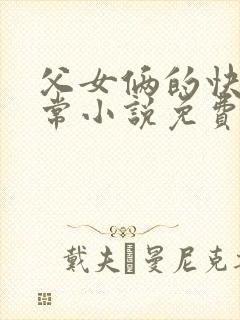 父女俩的快
常小说免费
戴夫 曼尼克